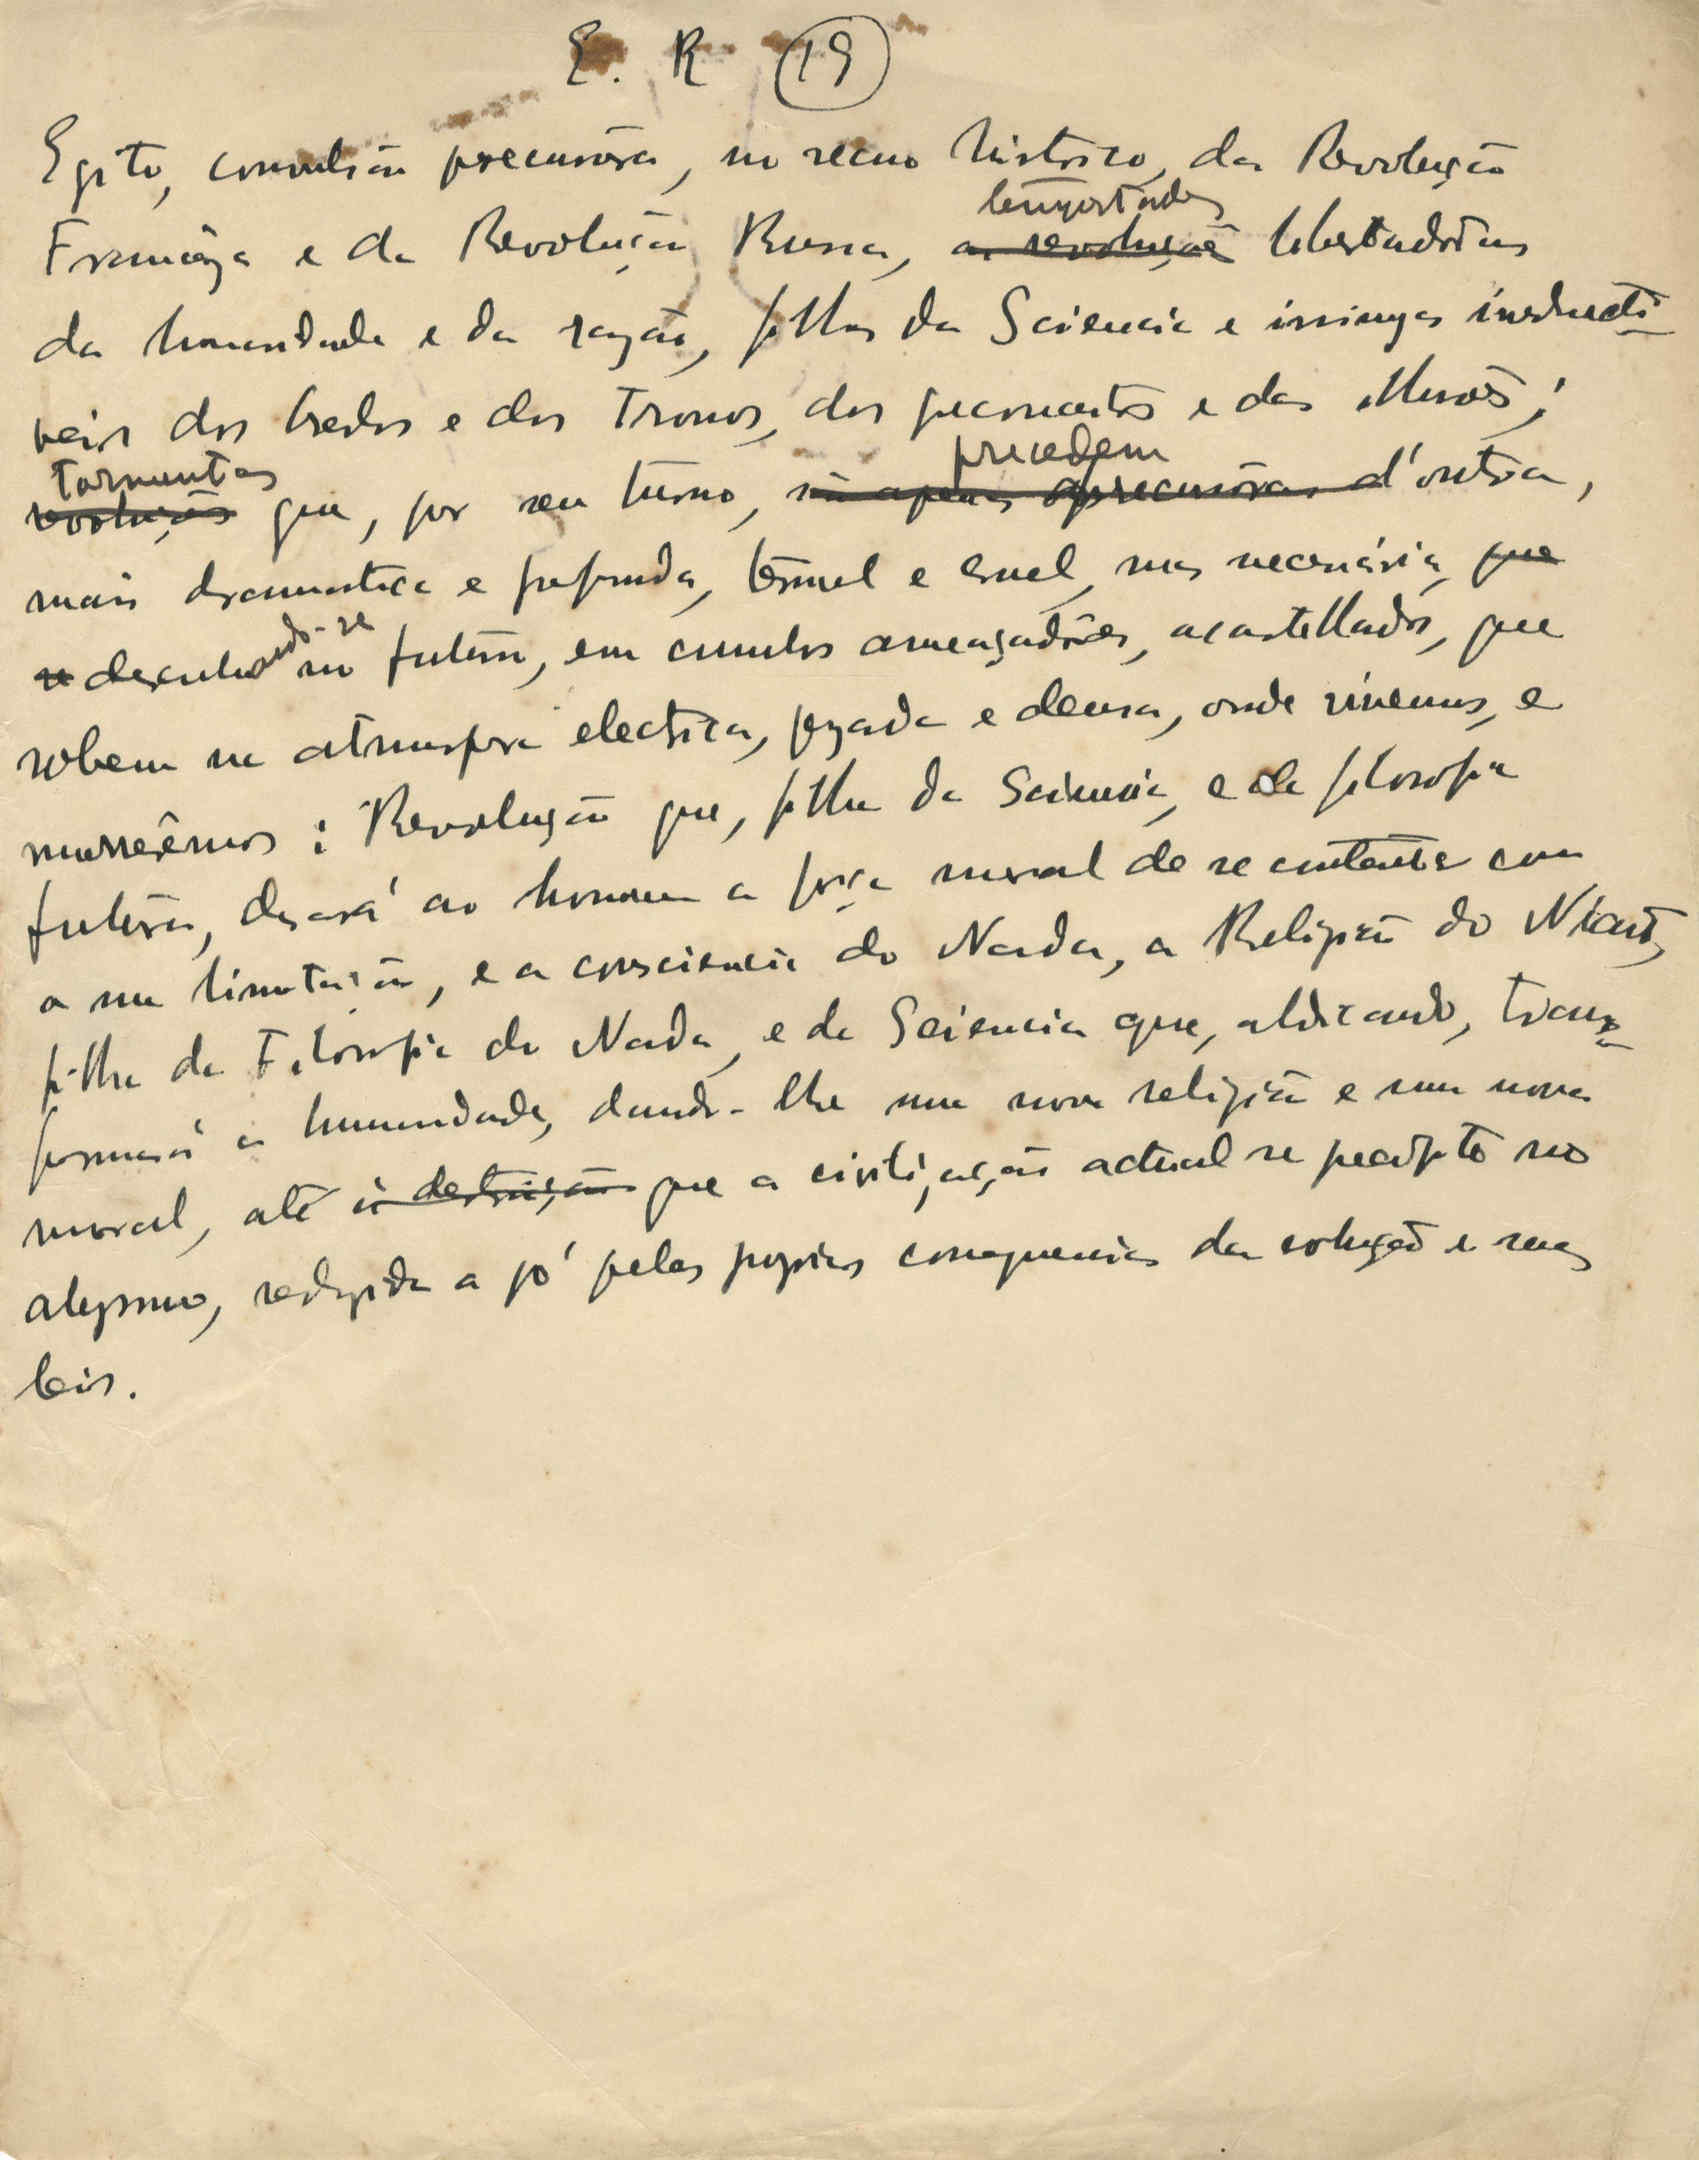 E. R 19
Egito, convulsão precursôra, no recuo histórico, da Revolução
Francêza e da Revolução Russa, as revoluções tempestades libertadôras
da humanidade e da razão, filhas da Sciencia e inimigas irreducti-
veis dos Credos e dos Tronos, dos preconceitos e das
revoluções tormentas que, por seu turno, são apenas as precursôras precedem d'outra,
mais dramatica e profunda, terrivel e cruel, mas necessária, que
se desenhando-se no futuro, em cumulos ameaçadôres, acastellados, que
sobem na atmosfera electrica, pezada e densa, onde vivemos, e
morrerêmos: Revolução que, filha da Sciencia, e da filosofia
futura, dará ao homem a força moral de se contentar com
a sua limitação, e a consciencia do Nada, a Religião do Nada,
filha da Filosofia do Nada, e da Sciencia que, abdicando, trans-
formará a humanidade, dando-lhe uma nova religião e uma nova
moral, até à destruição que a civilização actual se precipite no
abysmo, reduzida a pó pelas proprias consequencias da evolução e suas
leis.